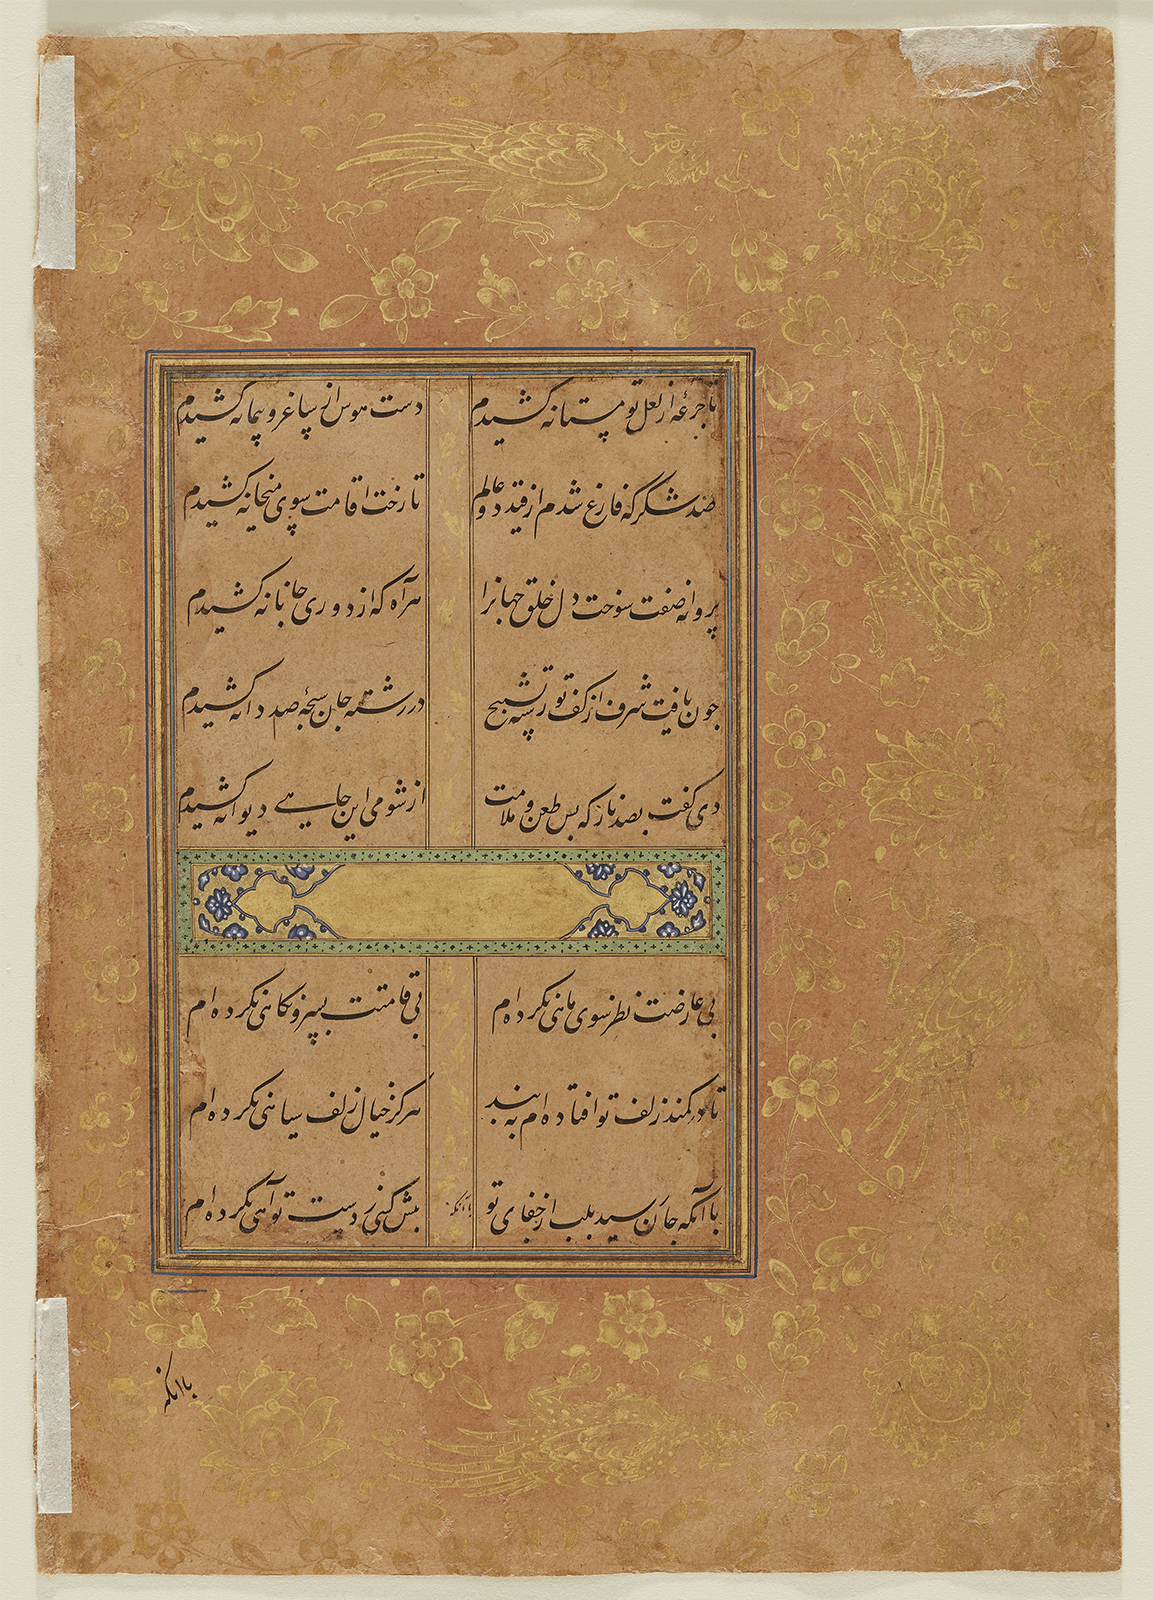 تا جرعهٔ از لعل تو مستانه کشیدم دست هوس از ساغر و پیمانه کشیدم
صد شکر که فارغ شدم از قید دو عالم تا رخت اقامت سوی میخانه کشیدم
پروانه صفت سوخت دل خلق جهانرا هر آه که از دوری جانانه کشیدم
چون یافت شرف از کف تو رشته تسبیح در رشته جان سبحهٔ صد دانه کشیدم
دی گفت بصد ناز که بس طعن و ملامت از شومی این جاهی دیوانه کشیدم
بی عارضت نظر سوی ماهی نکرده ام بی قامتت بسرو نگاهی نکرده ام
تا در کمند زلف تو افتاده ام به بند هرگز خیال زلف سیاهی نکرده ام
با آنکه جان رسید بلب از جفای تو پیش کسی ز دست تو آهی نکرده ام
با آنکه
باانکه